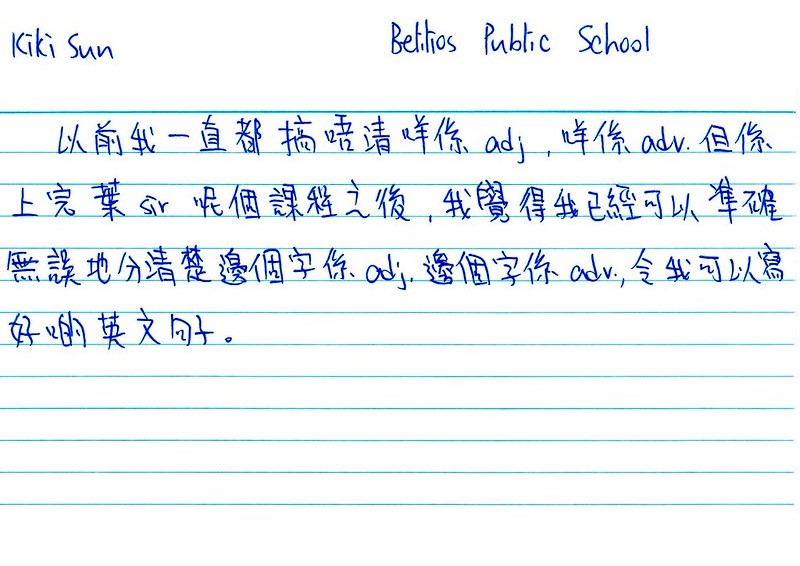 Kiki Sun Belilios Public School
以前我一直都搞唔清咩係 adj, 咩係 adv. 但係
上完葉 sir 呢個課程之後, 我覺得我已經可以準確
無誤地分清楚邊個字係 adj. 邊個字係 adv., 令我可以寫
好啲英文句子。